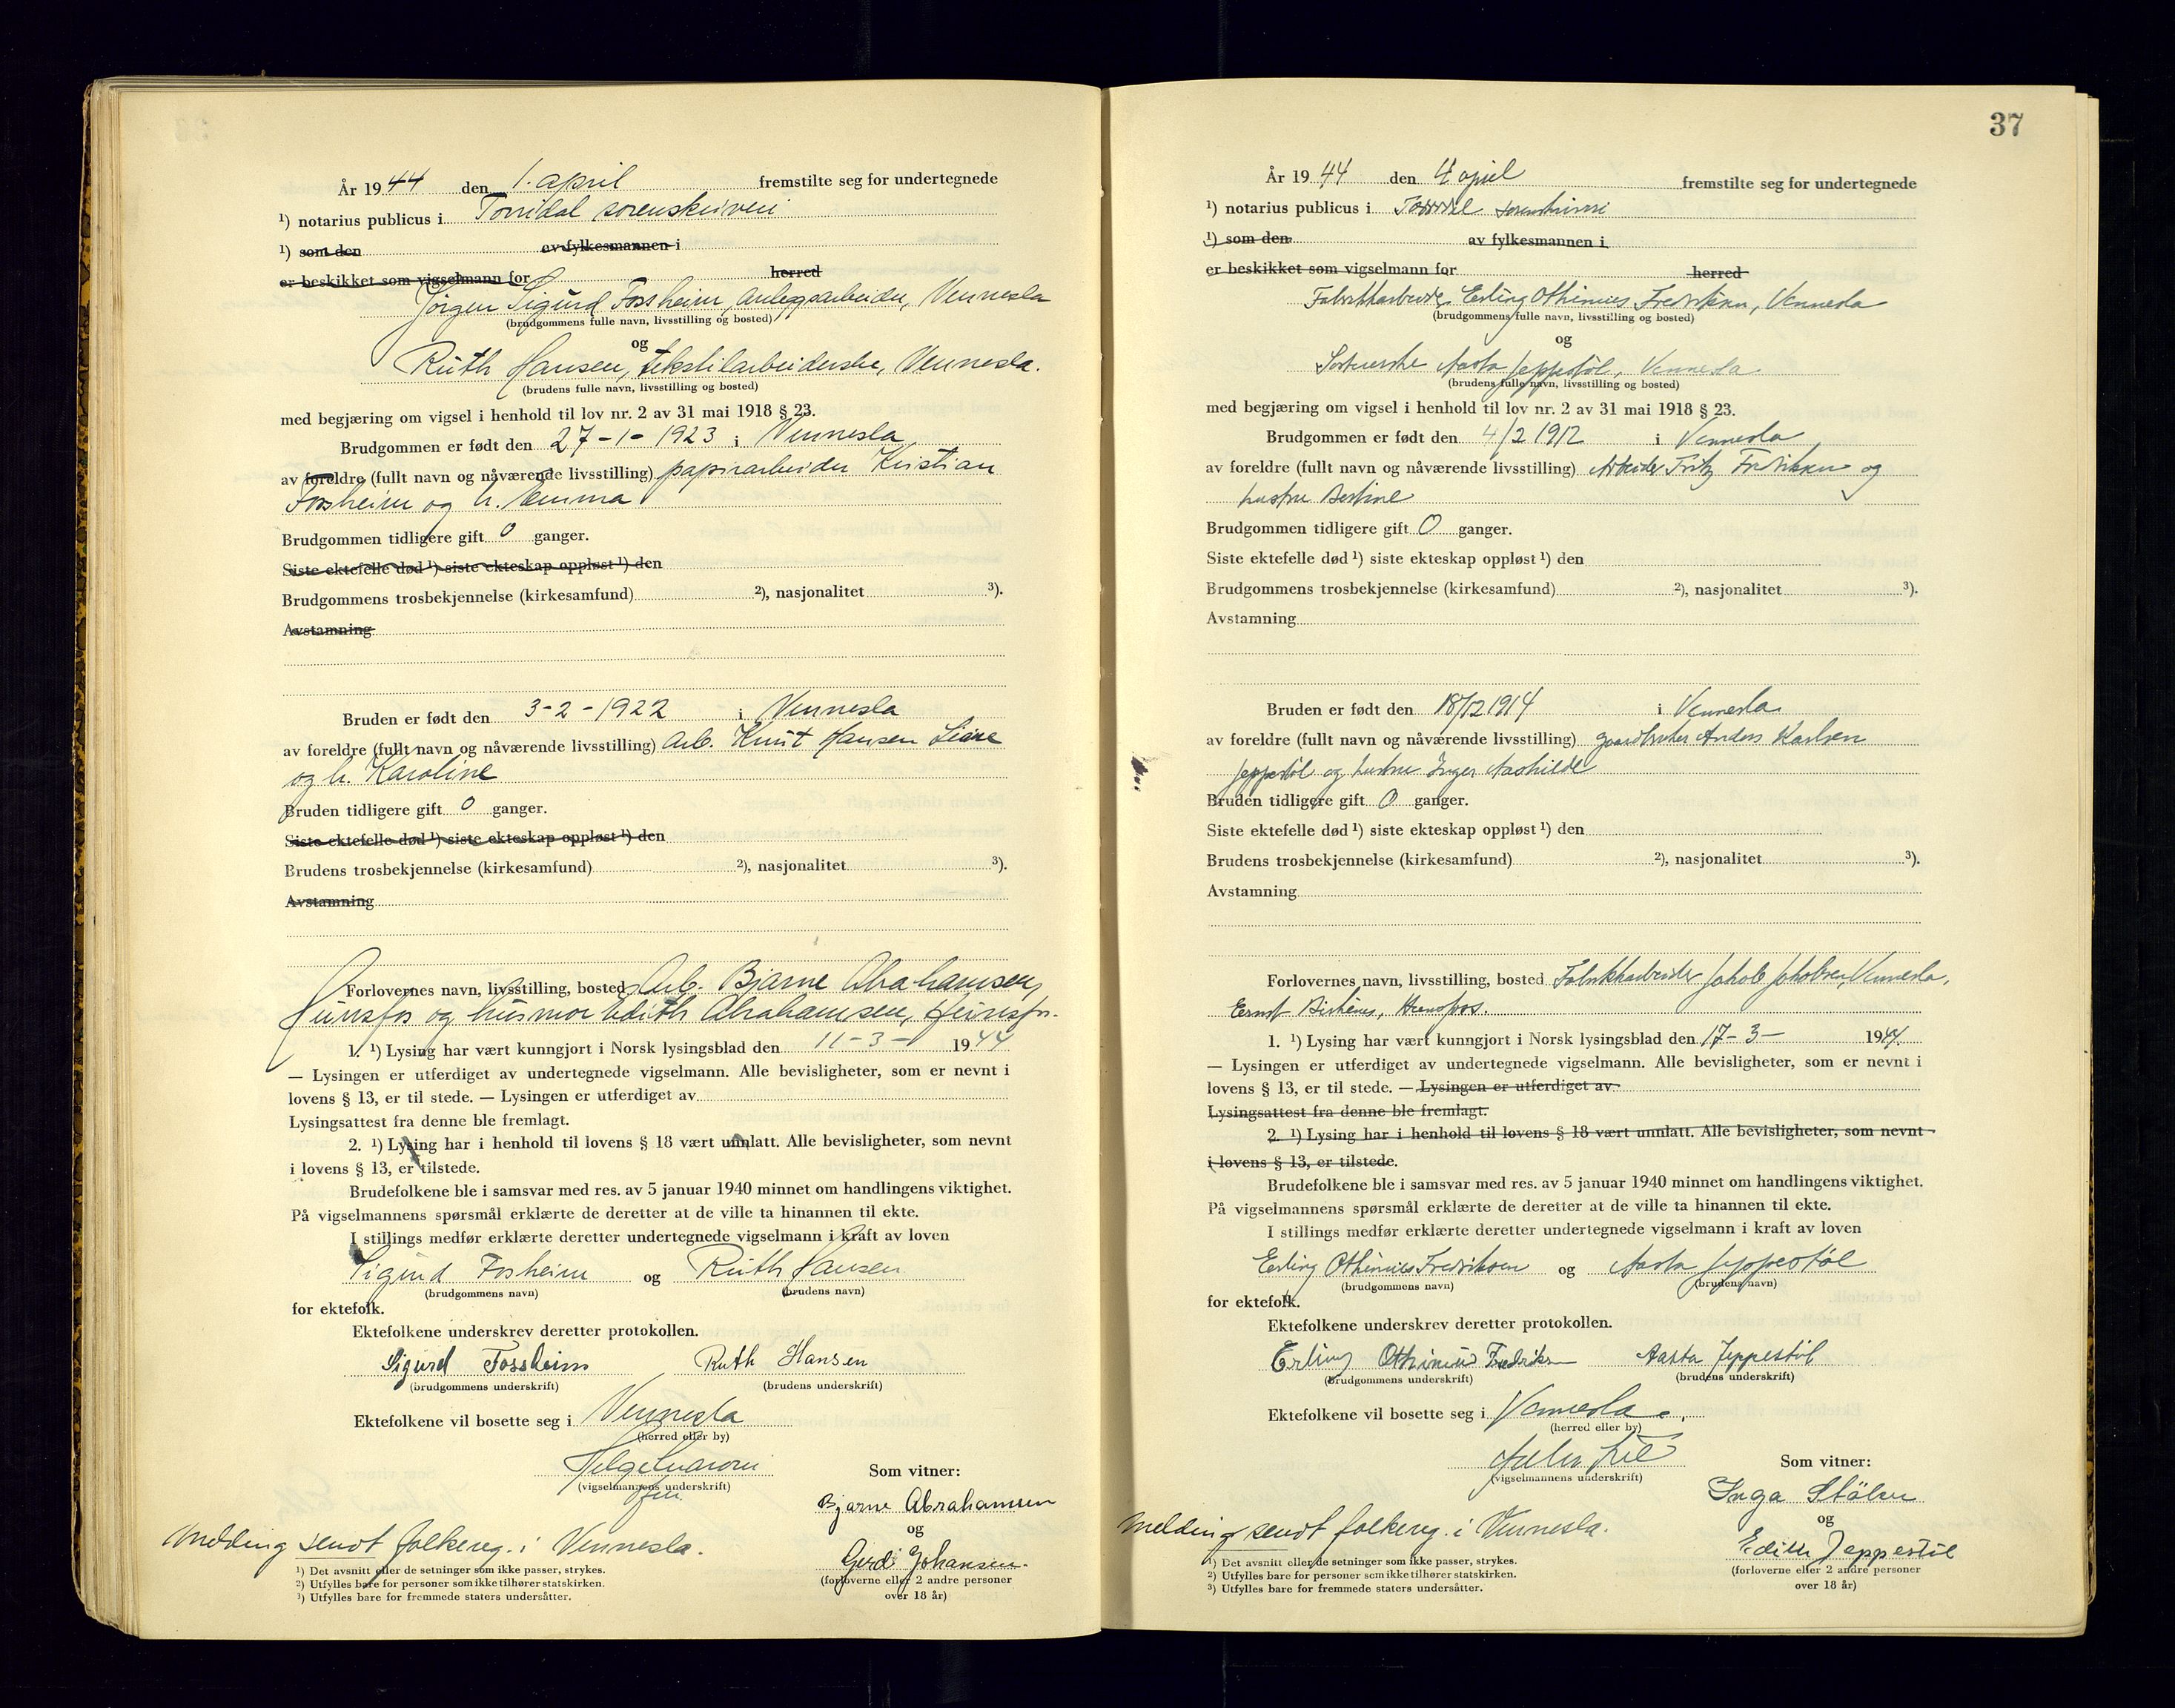 År 1944 den 1. april fremstilte seg for undertegnede
¹) notarius publicus i Torridal sorenskriveri
¹) som den av fylkesmannen i
er beskikket som vigselmann for herred
Jørgen Sigurd Fossheim, anleggsarbeider, Vennesla
(brudgommens fulle navn, livsstilling og bosted)
og
Ruth Hansen, tekstilarbeiderske, Vennesla.
(brudens fulle navn, livsstilling og bosted)
med begjæring om vigsel i henhold til lov nr. 2 av 31 mai 1918 § 23.
Brudgommen er født den 27-1-1923 i Vennesla,
av foreldre (fullt navn og nåværende livsstilling) papirarbeider Kristian
Fossheim og h. Emma
Brudgommen tidligere gift 0 ganger.
Siste ektefelle død ¹) siste ekteskap oppløst ¹) den
Brudgommens trosbekjennelse (kirkesamfund) ²), nasjonalitet ³).
Avstamning
Bruden er født den 3-2-1922 i Vennesla
av foreldre (fullt navn og nåværende livsstilling) Arb. Knut Hansen
og h. Karoline
Bruden tidligere gift 0 ganger.
Siste ektefelle død ¹) siste ekteskap oppløst ¹) den
Brudens trosbekjennelse (kirkesamfund) ²), nasjonalitet ³).
Avstamning
Forlovernes navn, livsstilling, bosted Arb. Bjarne Abrahamsen,
Hunsfos og husmor Edith Abrahamsen, Hunsfos.
1. ¹) Lysing har vært kunngjort i Norsk lysingsblad den 11-3- 1944
— Lysingen er utferdiget av undertegnede vigselmann. Alle bevisligheter, som er nevnt i
lovens § 13, er til stede. — Lysingen er utferdiget av
Lysingsattest fra denne ble fremlagt.
2. ¹) Lysing har i henhold til lovens § 18 vært unnlatt. Alle bevisligheter, som nevnt
i lovens § 13, er tilstede.
Brudefolkene ble i samsvar med res. av 5 januar 1940 minnet om handlingens viktighet.
På vigselmannens spørsmål erklærte de deretter at de ville ta hinannen til ekte.
I stillings medfør erklærte deretter undertegnede vigselmann i kraft av loven
Sigurd Fosheim og Ruth Hansen
(brudgommens navn) (brudens navn)
for ektefolk.
Ektefolkene underskrev deretter protokollen.
Sigurd Fossheim Ruth Hansen
(brudgommens underskrift) (brudens underskrift)
Ektefolkene vil bosette seg i Vennesla
(herred eller by)
(vigselmannens underskrift)
Som vitner:
Bjarne Abrahamsen
og
Gerd Johansen.
(forloverne eller 2 andre personer
over 18 år)
Melding sendt folkereg. i Vennesla.
¹) Det avsnitt eller de setninger som ikke passer, strykes.
²) Utfylles bare for personer som ikke tilhører statskirken.
³) Utfylles bare for fremmede staters undersåtter.
37
År 1944 den 4 april fremstilte seg for undertegnede
¹) notarius publicus i Torridal sorenskriveri
¹) som den av fylkesmannen i
er beskikket som vigselmann for herred
Fabrikkarbeider Erling Othinius Fredriksen, Vennesla
(brudgommens fulle navn, livsstilling og bosted)
og
Aasta Jeppestøl, Vennesla
(brudens fulle navn, livsstilling og bosted)
med begjæring om vigsel i henhold til lov nr. 2 av 31 mai 1918 § 23.
Brudgommen er født den 4/2 1912 i Vennesla,
av foreldre (fullt navn og nåværende livsstilling) Arbeider Fritz Fredriksen og
hustru Bertine
Brudgommen tidligere gift 0 ganger.
Siste ektefelle død ¹) siste ekteskap oppløst ¹) den
Brudgommens trosbekjennelse (kirkesamfund) ²), nasjonalitet ³).
Avstamning
Bruden er født den 18/12 1914 i Vennesla
av foreldre (fullt navn og nåværende livsstilling) gaardbruker Anders Karlsen
Jeppestøl og hustru Inger Aashilde
Bruden tidligere gift 0 ganger.
Siste ektefelle død ¹) siste ekteskap oppløst ¹) den
Brudens trosbekjennelse (kirkesamfund) ²), nasjonalitet ³).
Avstamning
Forlovernes navn, livsstilling, bosted Fabrikkarbeider Jakob Jakobsen, Vennesla,
Ernst Hunsfos.
1. ¹) Lysing har vært kunngjort i Norsk lysingsblad den 17-3- 1944.
— Lysingen er utferdiget av undertegnede vigselmann. Alle bevisligheter, som er nevnt i
lovens § 13, er til stede. — Lysingen er utferdiget av
Lysingsattest fra denne ble fremlagt.
2. ¹) Lysing har i henhold til lovens § 18 vært unnlatt. Alle bevisligheter, som nevnt
i lovens § 13, er tilstede.
Brudefolkene ble i samsvar med res. av 5 januar 1940 minnet om handlingens viktighet.
På vigselmannens spørsmål erklærte de deretter at de ville ta hinannen til ekte.
I stillings medfør erklærte deretter undertegnede vigselmann i kraft av loven
Erling Othinius Fredriksen og Aasta Jeppestøl
(brudgommens navn) (brudens navn)
for ektefolk.
Ektefolkene underskrev deretter protokollen.
Erling Othinius Fredriksen Aasta Jeppestöl
(brudgommens underskrift) (brudens underskrift)
Ektefolkene vil bosette seg i Vennesla.
(herred eller by)
(vigselmannens underskrift)
Som vitner:
Inga
og
Edith Jeppestöl
(forloverne eller 2 andre personer
over 18 år)
Melding sendt folkereg. i Vennesla.
¹) Det avsnitt eller de setninger som ikke passer, strykes.
²) Utfylles bare for personer som ikke tilhører statskirken.
³) Utfylles bare for fremmede staters undersåtter.